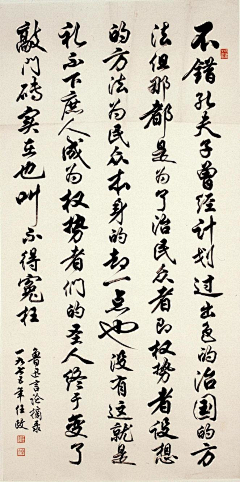 不错孔夫子曾经计划过出色的治国的方
法但那都是为了治民众者即权势者设想
的方法为民众本身的却一点也没有这就是
礼不下庶人成为权势者们的圣人终于变了
敲门砖实在也叫不得冤枉
鲁迅言论摘录
一九七三年任政